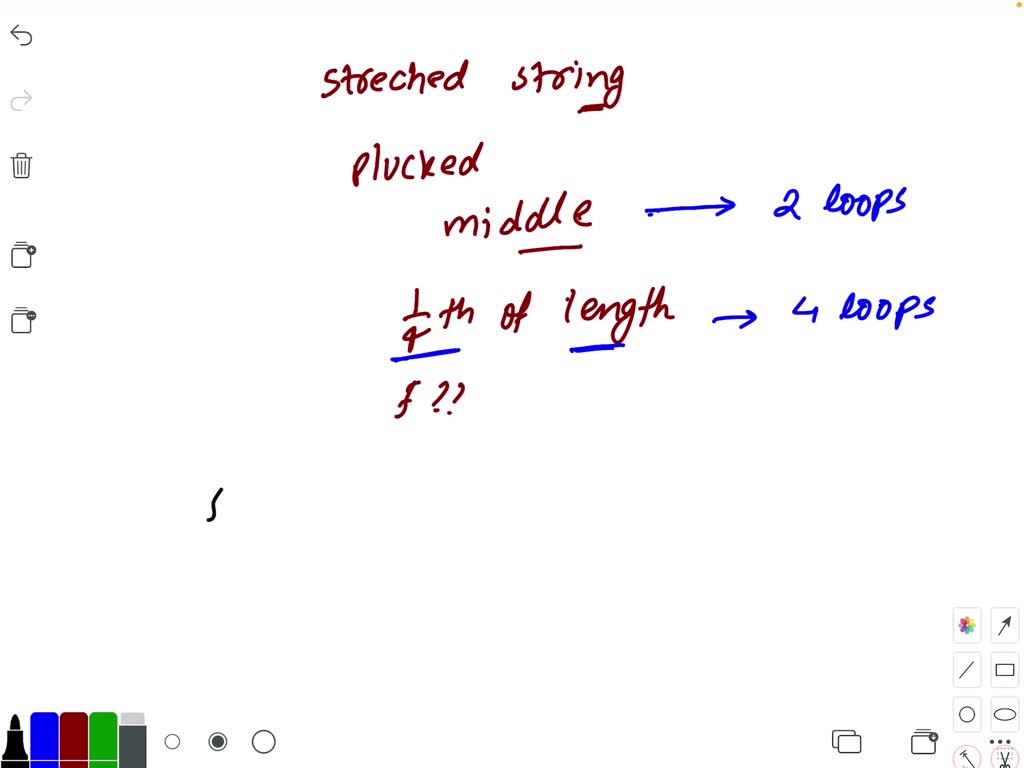 streched string
plucked
middle → 2 loops
1/4th of length → 4 loops
f ??